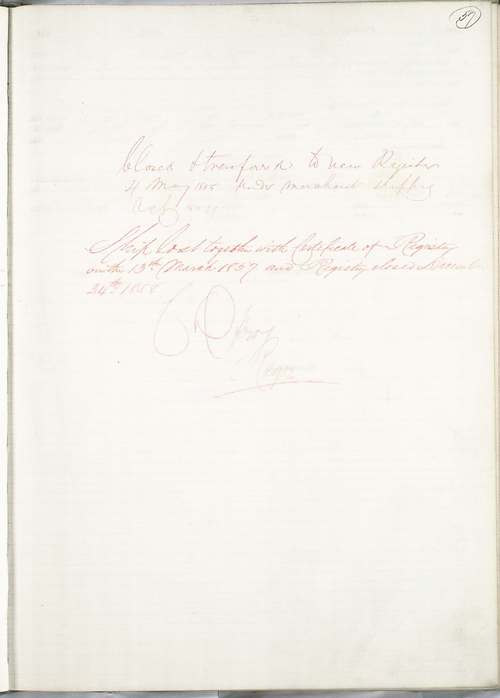 57
Closed & transferred to new Register
4 May 1855 under merchant shipping
Act
Ship Lost together with Certificate of Registry
on the 13th March 1857 and Registry closed December
24th 1858